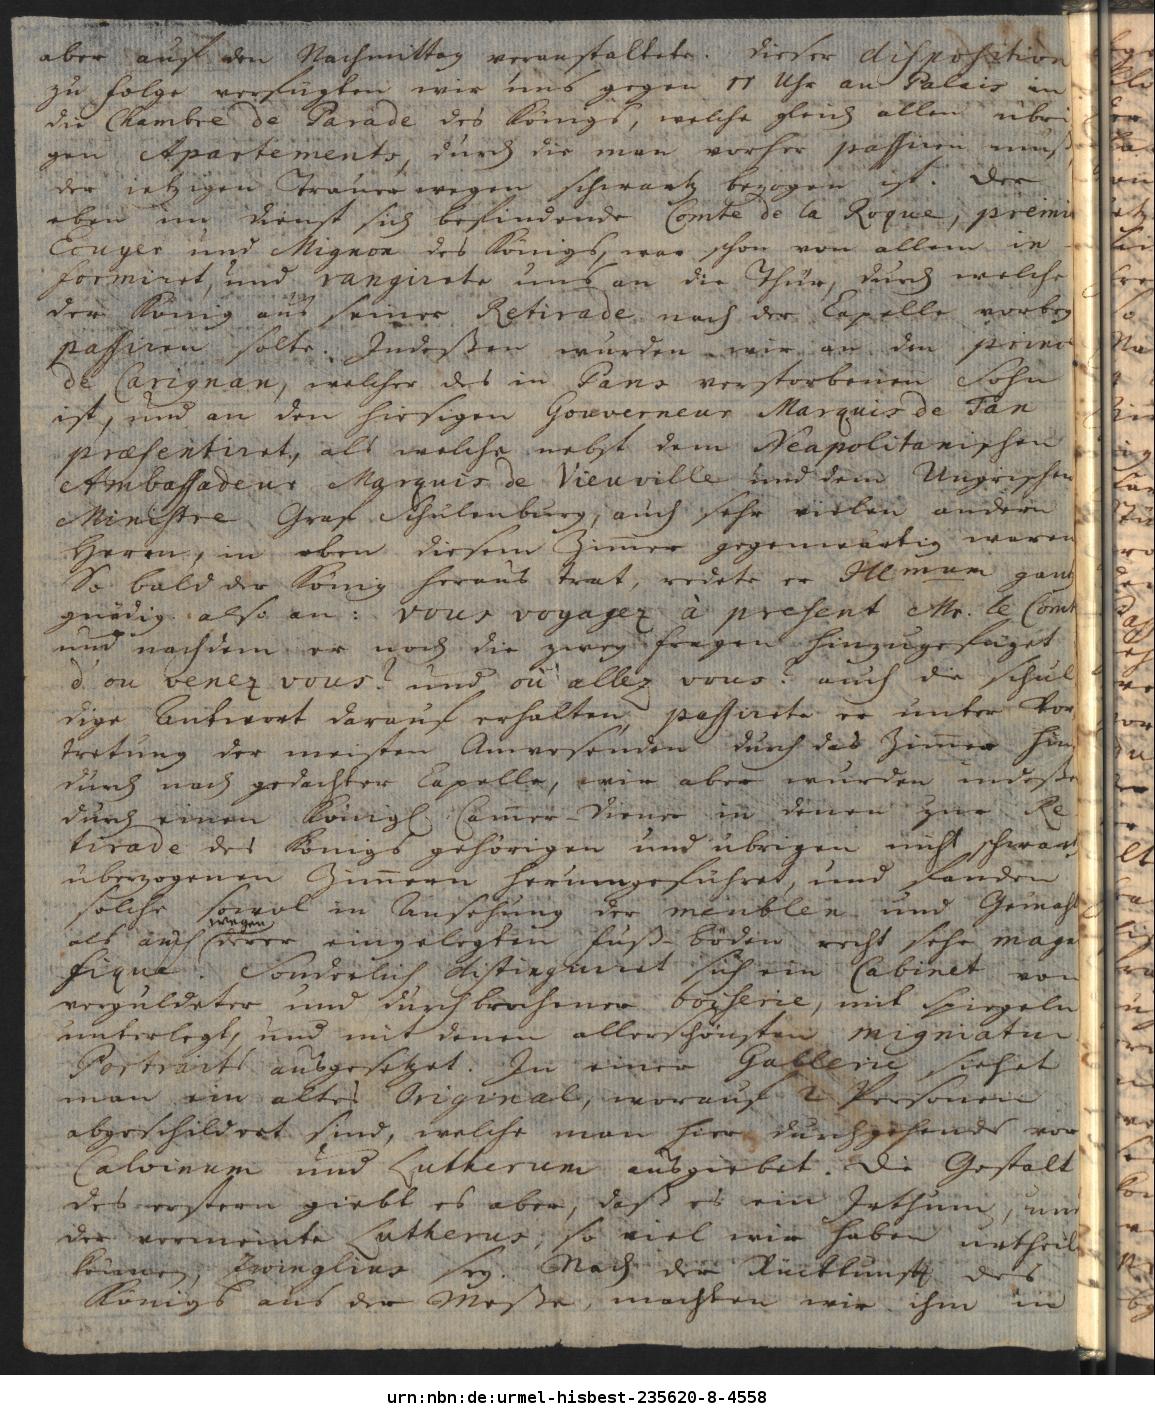 aber auf den Nachmittag veranstaltete. Dieser disposition
zu folge verfügten wir uns gegen 11 Uhr an Palais in
die Chambre de Parade des Königs, welche gleich allen übri
gen Apartements, durch die man vorher passiren muß,
der ietzigen Trauer wegen schwartz bezogen ist. Der
eben im Dienst sich befindende Comte de la Roque, premie
Ecuyer und Mignon des Königs, war schon von allem in-
formiret, und rangirete uns an die Thür, durch welche
der König aus seiner Retirade nach der Capelle vorbey
passiren solte. Indeßen wurden wir an den princ
de Carignan, welcher des in Paris verstorbenen Sohn
ist, und an den hiesigen Gouverneur Marquis de Tan
præsentiret, als welche nebst dem Neapolitanischen
Ambassadeur Marquis de Vieuville und dem Ungrischen
Ministre Graf Schulenburg, auch sehr vielen andern
Herren, in eben diesem Zimer gegenwärtig waren
So bald der König heraus trat, redete er Illmum gantz
gnädig also an: vous voyagez à present Mr. le Comt
und nachdem er noch die zwey fragen hinzugefüget
d'ou venez vous? und où allez vous? auch die schul
dige Antwort darauf erhalten, passirete er unter Vor
tretung der meisten Anwesenden durch das Zimer hin
durch nach gedachter Capelle, wir aber wurden indeße
durch einen Königl. Camer-Diener in denen zur Re-
tirade des Königs gehörigen und übrigen nicht schwartz
überzogenen Zimern herumgeführet, und fanden
solche sowol in Ansehung der meublen und Gemähl
als auch wegen derer eingelegten fuß-böden recht sehr magni
fique. Sonderlich distinguiret sich ein Cabinet von
verguldeter und durchbrochener boiserie, mit Spiegeln
unterlegt, und mit denen allerschönsten migniatur
Portraits ausgesetzet. In einer Gallerie siehet
man ein altes Original, worauf 2 Personen
abgeschildert sind, welche man hier durchgehends vor
Calvinum und Lutherum ausgiebet. Die Gestalt
des erstern giebt es aber, daß es ein Irthum, und
der vermeinte Lutherus, so viel wir haben urtheile
können, Zwinglius sey. Nach der Rückkunfft des
Königs aus der Meße, machten wir ihm in
urn:nbn:de:urmel-hisbest-235620-8-4558